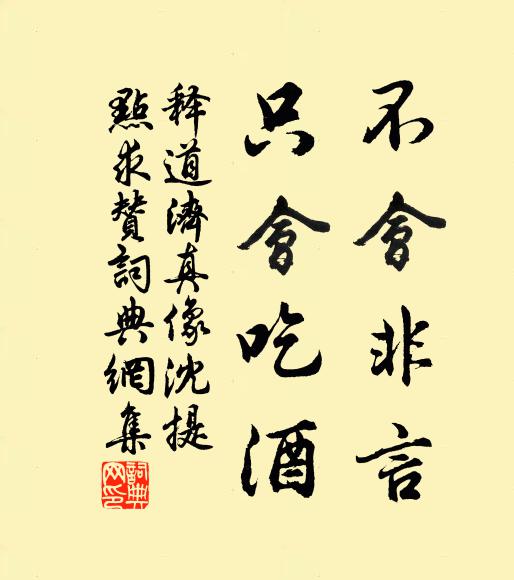 不會非言
只會吃酒
释道濟真像沈提
點求贊詞典網集
詞典网印